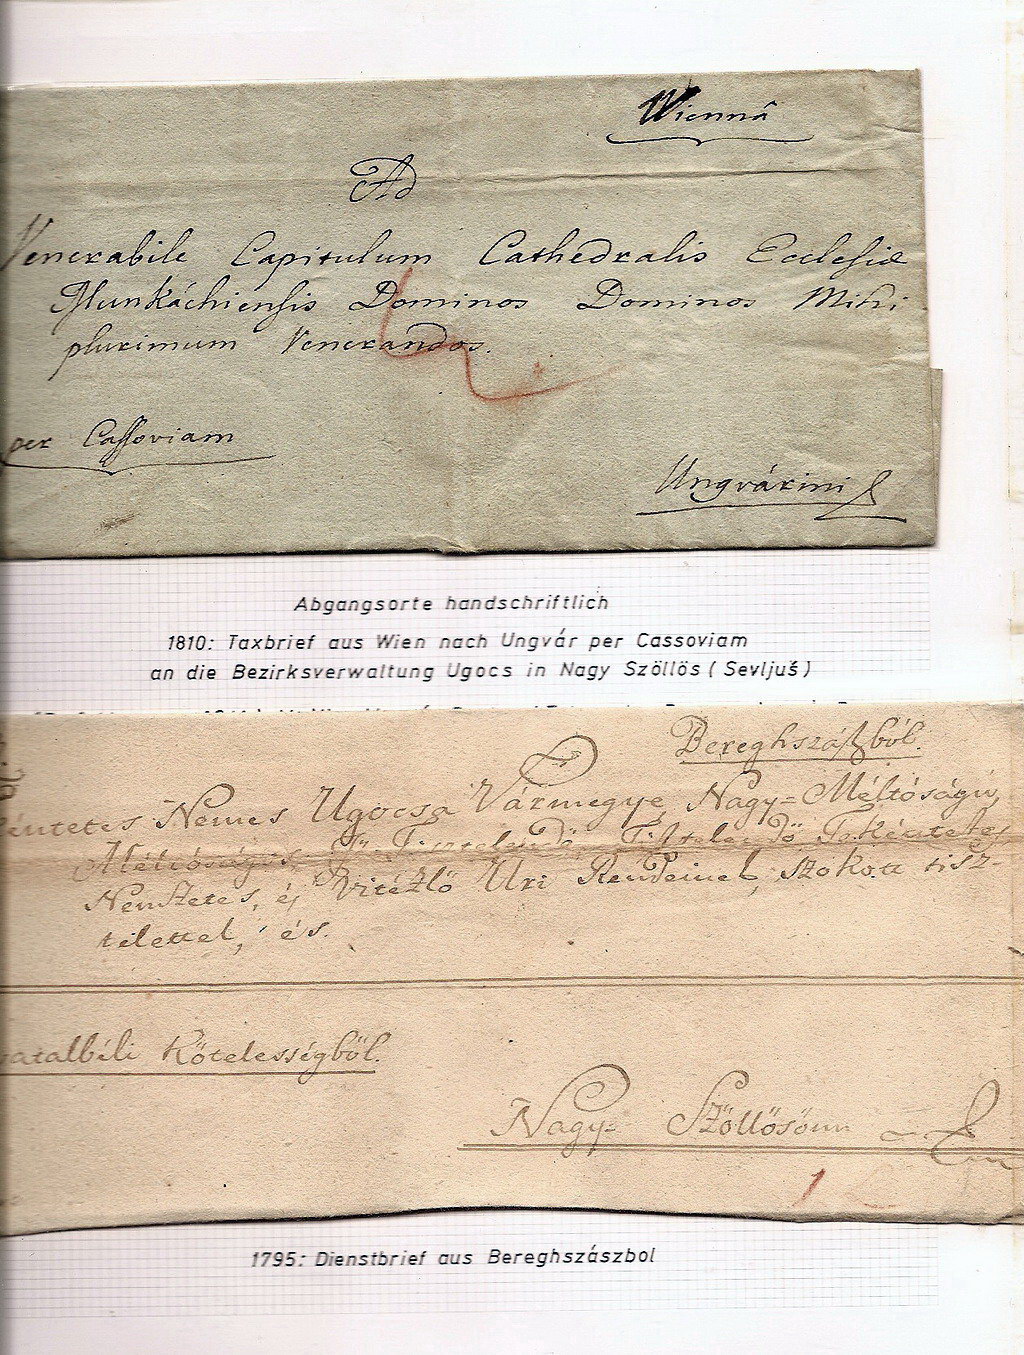 Viennâ
Ad
Venerabile Capitulum Cathedralis Ecclesiæ
Munkáchiensis Dominos Dominos Mihi
plurimum Venerandos.
per Cassoviam
Ungvárini
Abgangsorte handschriftlich
1810: Taxbrief aus Wien nach Ungvár per Cassoviam
an die Bezirksverwaltung Ugocs in Nagy Szöllös (Sevljuš)
Bereghszászból.
Nemes Ugocsa Vármegye, Nagy-Méltóságú,
Méltóságos, Fő Tisztelendő, Tisztelendő, Tekéntetes,
Nemzetes, és Vitézlő Uri Rendeinek, szokott tisz-
telettel, és.
Kötelességből.
Nagy- Szöllösönn
1
1795: Dienstbrief aus Bereghszászbol